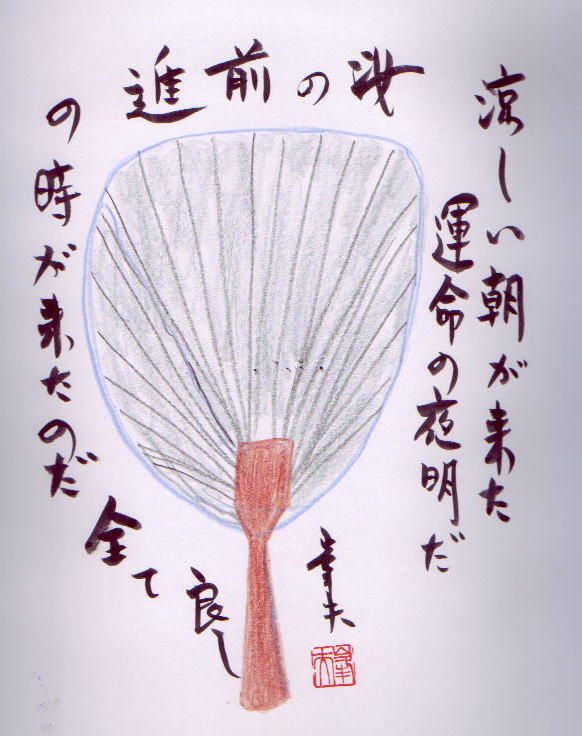 涼しい朝が来た
運命の夜明だ
汝の前進
の時が来たのだ
全て良し